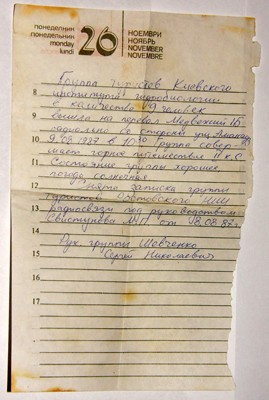 понеделник
понедельник
monday
lundi
26
НОЕМВРИ
НОЯБРЬ
NOVEMBER
NOVEMBRE
Группа Киевского
8 института гидробиологии
в количестве 19 человек
9 вышла на перевал Медвежий 1Б
со стороны
10 9.08.1987 в 10 30 Группа совер-
шает горное путешествие II к.с.
11 Состояние группы хорошее
погода солнечная.
12 Снята записка группы
туристов НИИ
13 Радиосвязи под руководством
Свистунова от 18.08.87г.
14
15 Рук. группы Шевченко
Сергей Николаевич
17